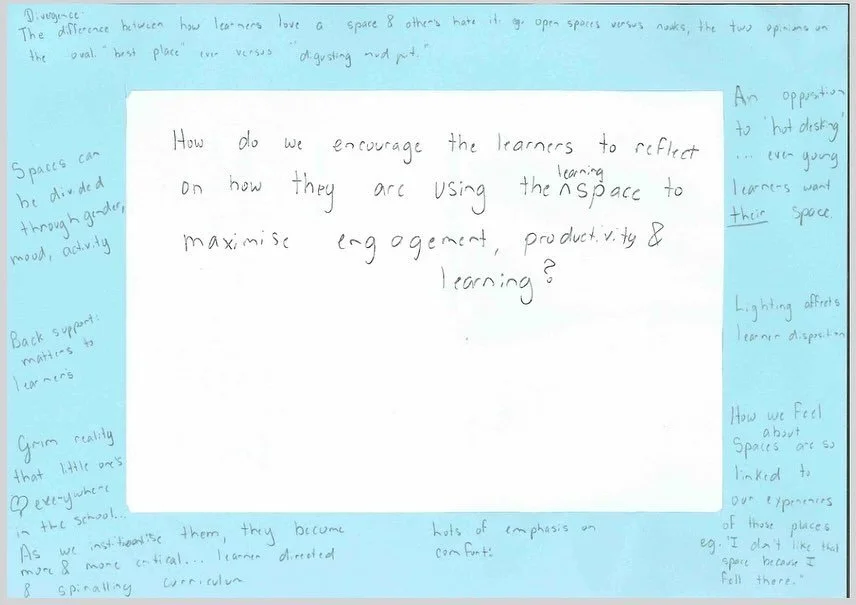 Divergence-
The difference between how learners love a space & others hate it. eg. open spaces versus nooks, the two opinions on
the oval. "best place" ever versus "disgusting mud pit."
How do we encourage the learners to reflect
on how they are using the learning space to
maximise engagement, productivity &
learning?
Spaces can
be divided
through gender,
mood, activity
Back support:
matters to
learners
Grim reality
that little one's
♡ everywhere
in the school...
As we institutionise them, they become
more & more critical... learner directed
& spiralling curriculum
Lots of emphasis on
comfort:
An opposition
to 'hot desking'
... even young
learners want
their space.
Lighting affects
learner disposition
How we feel
about
Spaces are so
linked to
our experiences
of those places
eg. "I don't like that
space because I
fell there."